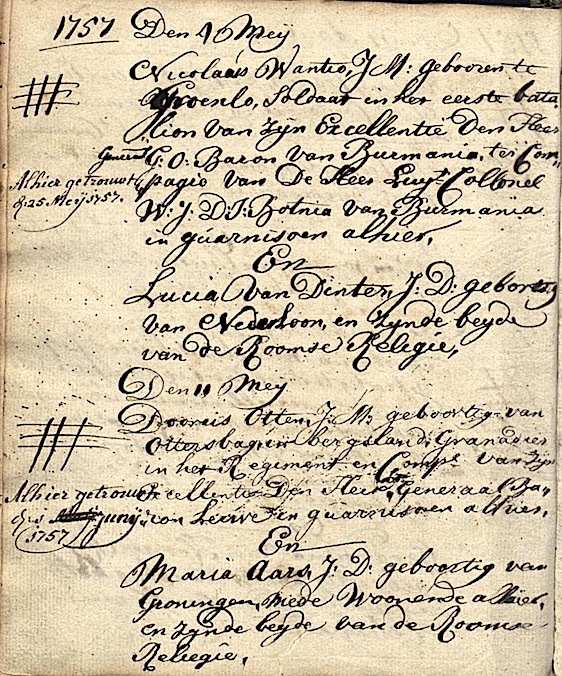 1757 Den 1 Meij
Nicolaas Wantio, J M: gebooren te
Groenlo, Soldaat in het eerste bata
lion van zijn Excellentie Den Heer
Generl G: O: Baron van Burmania, ter Com,
pagie van De Heer Luijt Collonel
W: J: D: J: Botnia van Burmania
in guarnisoen alhier,
Alhier getrouwt
d 25 Meij 1757.
En
Lucia van Dinter, J: D: geboortig
van Nederloon, en zynde beyde
van de Roomse Religie,
Den 11 Mey
Otten, J: M: geboortig van
in bergsland: Granadier
in het Regiment en Comp:e van Zijn
Excellentie Den Heer Generaal Ba-
ron in guarnisoen alhier,
Alhier getrouwt
junij
1757
En
Maria Aars, J: D: geboortig van
Groningen, mede Woonende alhier,
en zynde beyde van de Roomse
Religie,